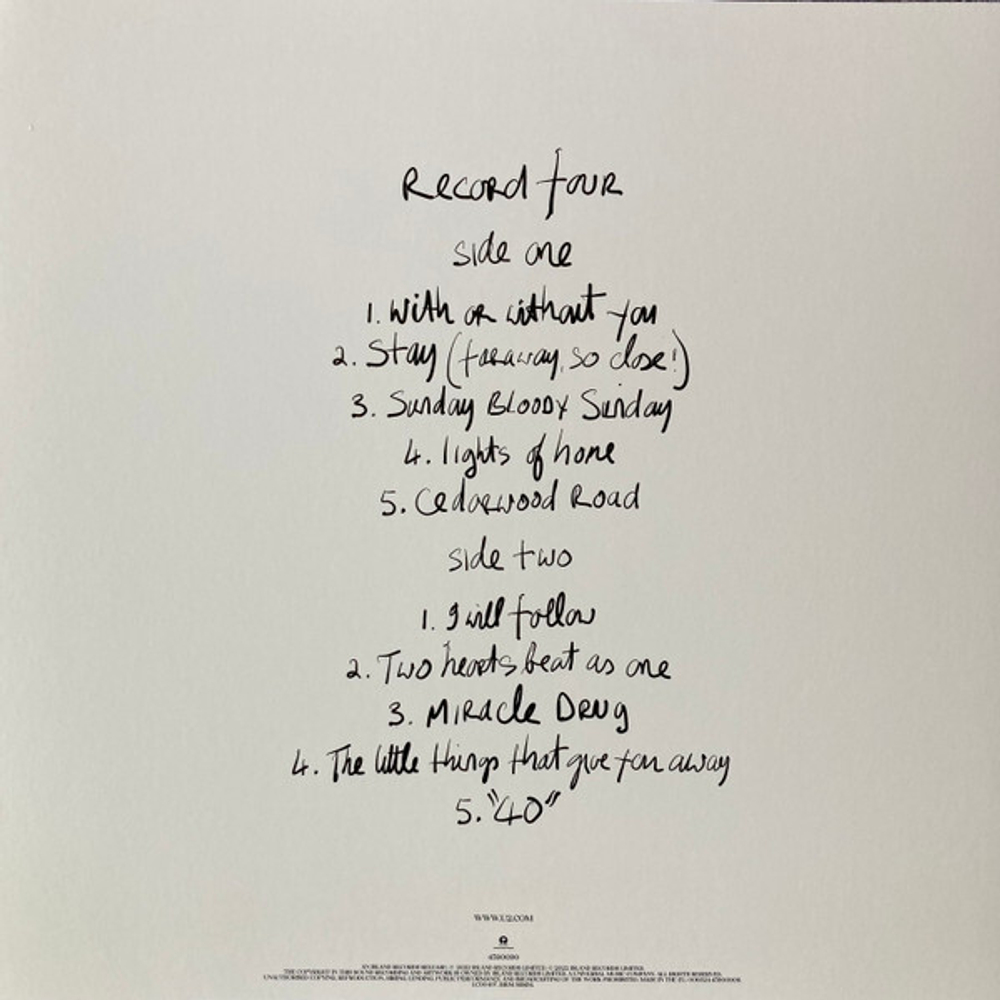 Record four
side one
1. With or without you
2. Stay (faraway, so close!)
3. Sunday Bloody Sunday
4. lights of home
5. Cedarwood Road
side two
1. I will follow
2. Two hearts beat as one
3. Miracle Drug
4. The little things that give you away
5. "40"
WWW.U2.COM